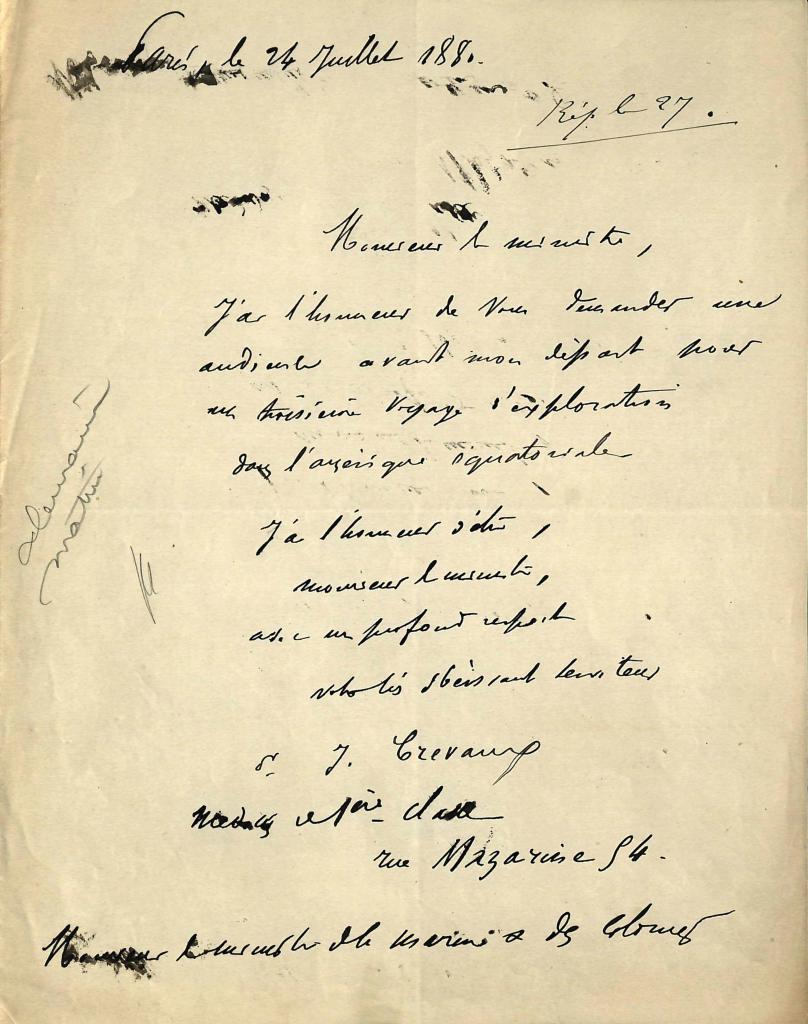 Paris, le 24 Juillet 1880.
Rép. le 27.
Monsieur le ministre,
J'ai l'honneur de vous demander une
audience avant mon départ pour
un troisième voyage d'exploration
dans l'amérique équatoriale
J'ai l'honneur d'être,
monsieur le ministre,
avec un profond respect
votre très obéissant serviteur
Dr J. Crevaux
médecin de 1ère classe
rue Mazarine 54.
Monsieur le ministre de la marine & des colonies
demain
matin